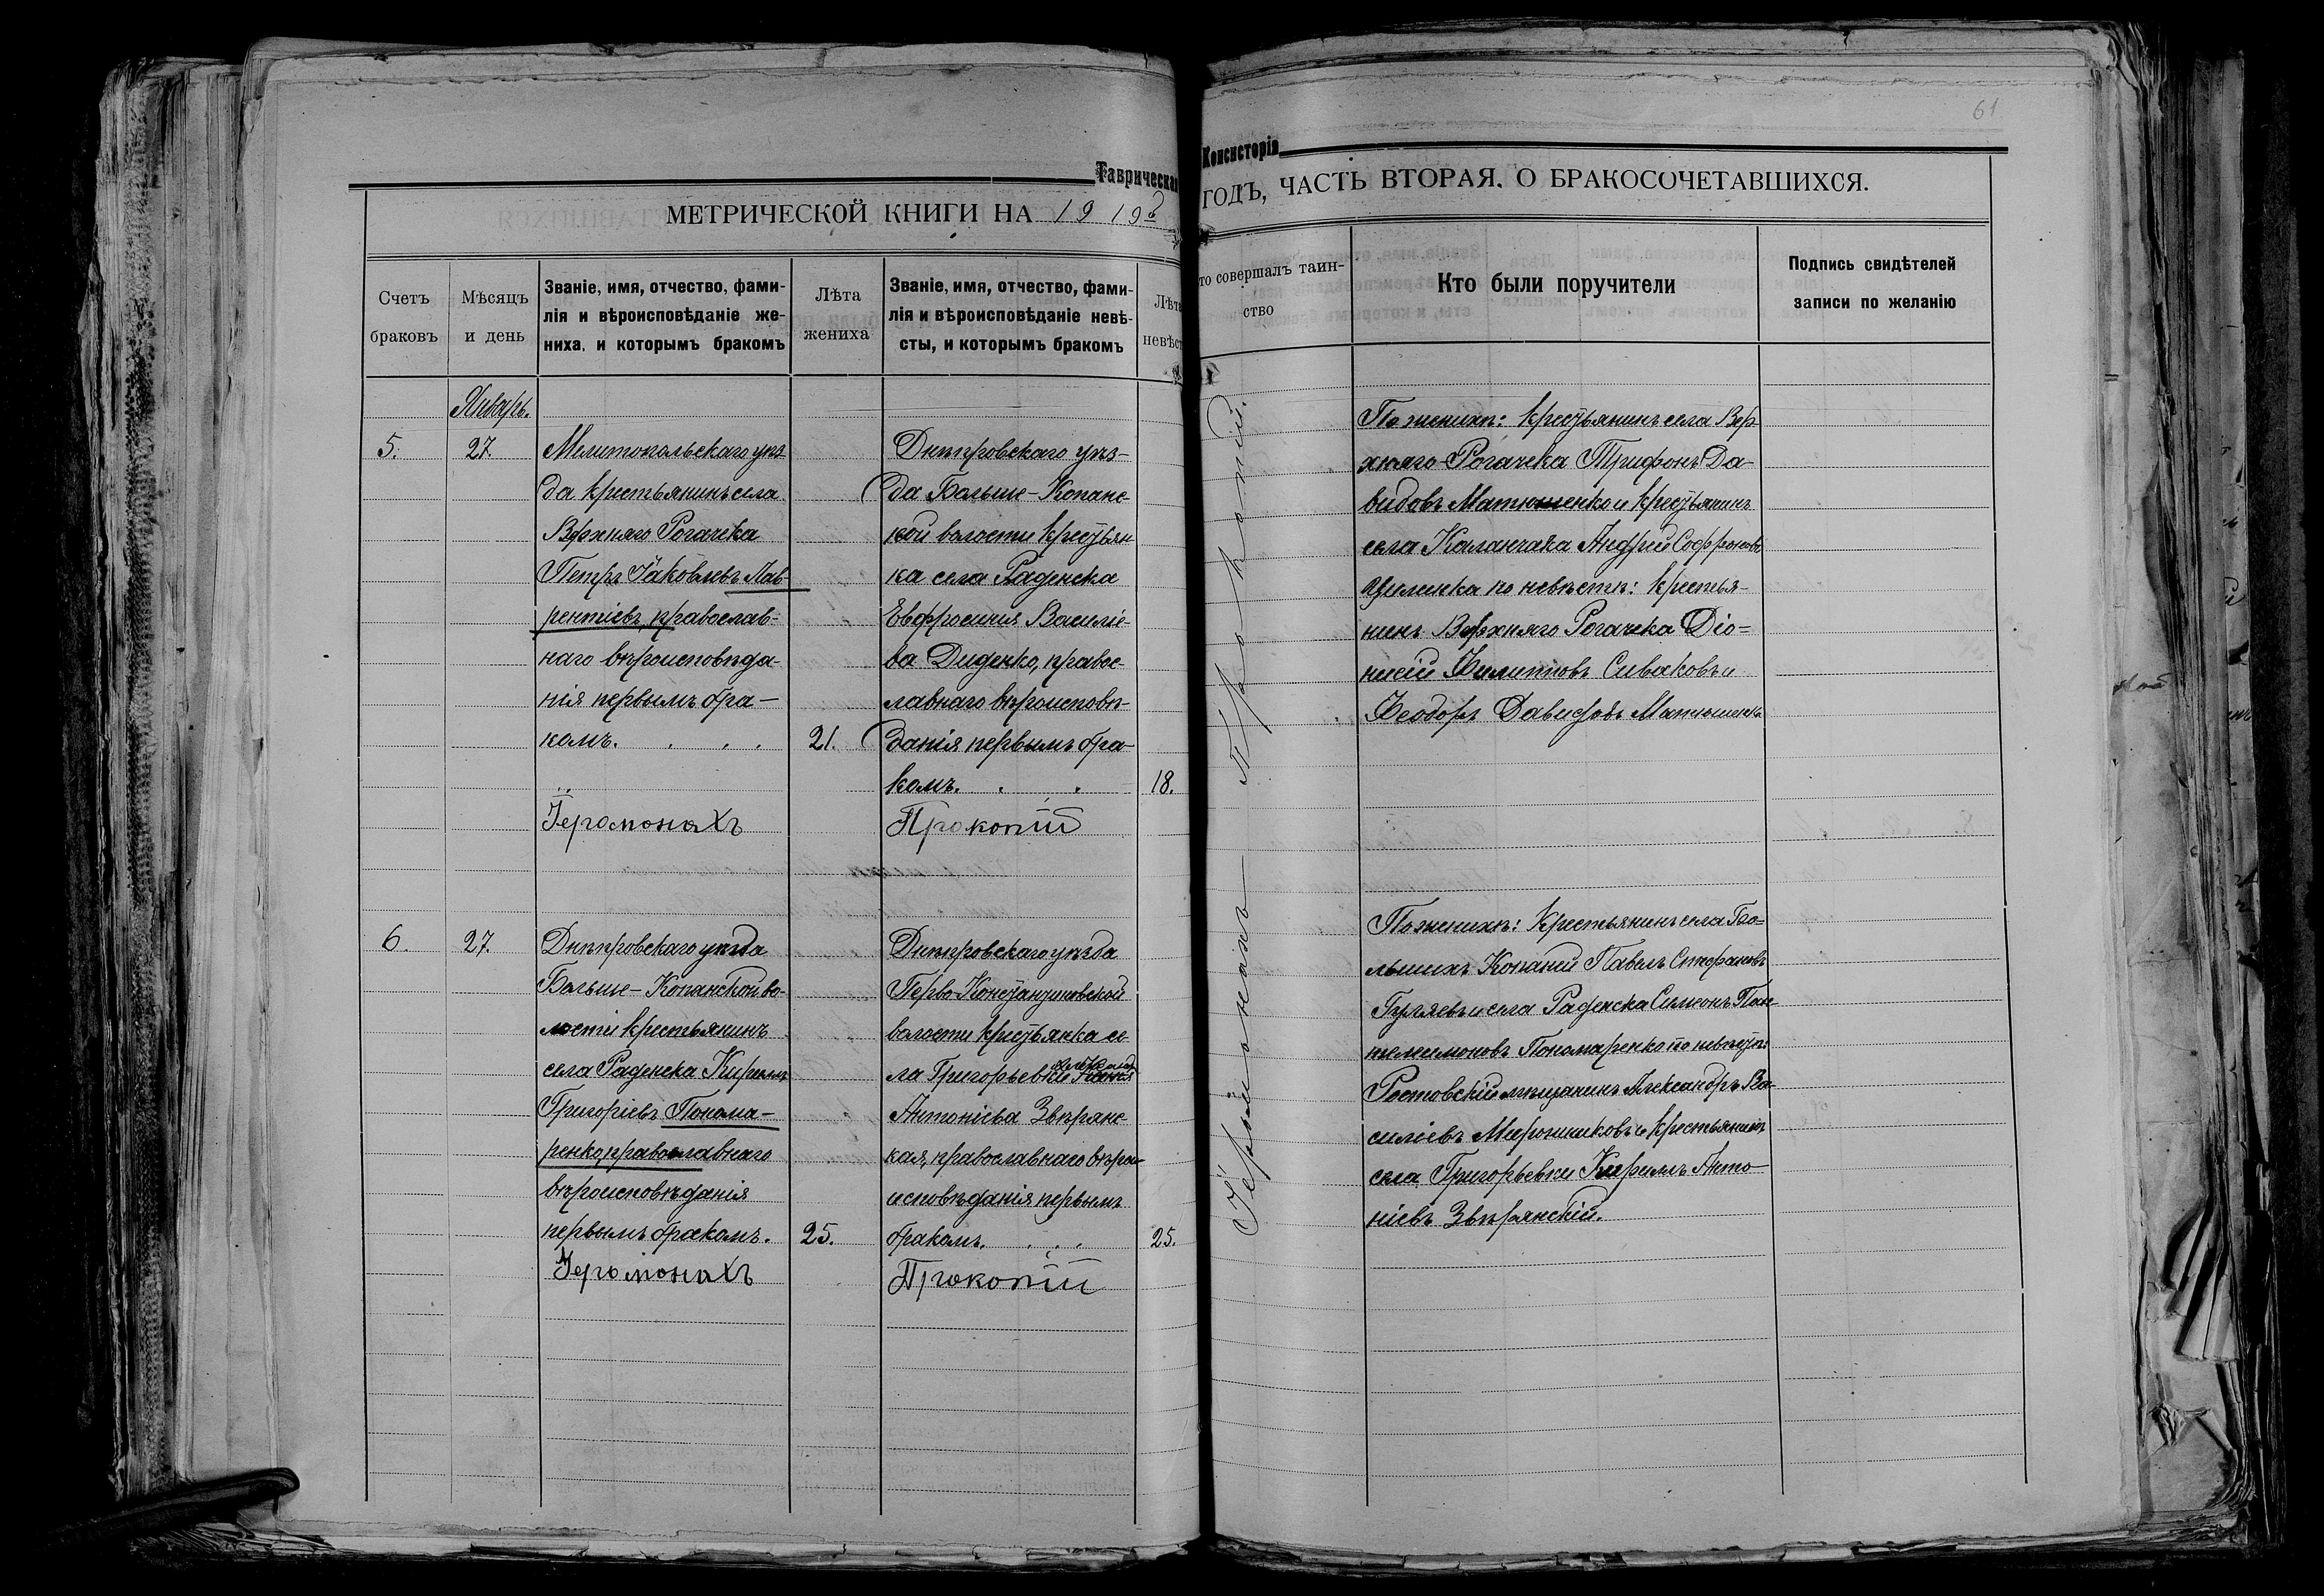 61
Таврическая
Консисторія
МЕТРИЧЕСКОЙ КНИГИ НА 1919й
ГОДЪ, ЧАСТЬ ВТОРАЯ, О БРАКОСОЧЕТАВШИХСЯ.
Счетъ браковъ
Мѣсяцъ и день
Званіе, имя, отчество, фами-
лія и вѣроисповѣданіе же-
ниха, и которымъ бракомъ
Лѣта жениха
Званіе, имя, отчество, фами-
лія и вѣроисповѣданіе невѣ-
сты, и которымъ бракомъ
Лѣта
невѣст
то совершалъ таин-
ство
Кто были поручители
Подпись свидѣтелей
записи по желанію
Январь.
5.
27.
Мелитопольскаго уѣз-
да крестьянинъ села
Верхняго Рогачека
Петръ Іаковлевъ Лав-
рентіевъ, православ-
наго вѣроисповѣда-
нія первымъ бра-
комъ.
21.
Днѣпровскаго уѣз-
да Больше-Копанс-
кой волости крестьян
ка села Раденска
Евфросинія Василіе-
ва Диденко, правос-
лавнаго вѣроисповѣ-
данія первымъ бра-
комъ.
18.
Іеромонахъ Прокопій
Іеромонахъ Прокопій.
По женихѣ: крестьянинъ села Вер
хняго Рогачека Трифонъ Да-
видовъ Матюшенко и крестьянинъ
села Каланчака Андрей Софроновъ
по невѣстѣ: крестья-
нинъ Верхняго Рогачека Діо-
нисій Филипповъ Сиваковъ и
Ѳеодоръ Давидовъ Матюшенко
6.
27.
Днѣпровскаго уѣзда
Больше-Копанской во-
лости крестьянинъ
села Раденска Кириллъ
Григоріевъ Понома-
ренко, православнаго
вѣроисповѣданія
первымъ бракомъ.
25.
Днѣпровскаго уѣзда
Перво-Константиновской
волости крестьянка се-
ла Григорьевки
Антоніева Звѣрянс-
кая, православнаго вѣро-
исповѣданія первымъ
бракомъ.
25.
Іеромонахъ Прокопій
По женихѣ: Крестьянинъ села Бо-
льшихъ Копаней Павелъ Стефановъ
Гуляевъ и села Раденска Симеонъ Пан-
телеимоновъ Пономаренко по невѣстѣ:
Ростовскій мѣщанинъ Александръ Ва-
силіевъ Мирошниковъ и крестьянинъ
села Григорьевки Кириллъ Анто-
ніевъ Звѣрянскій.